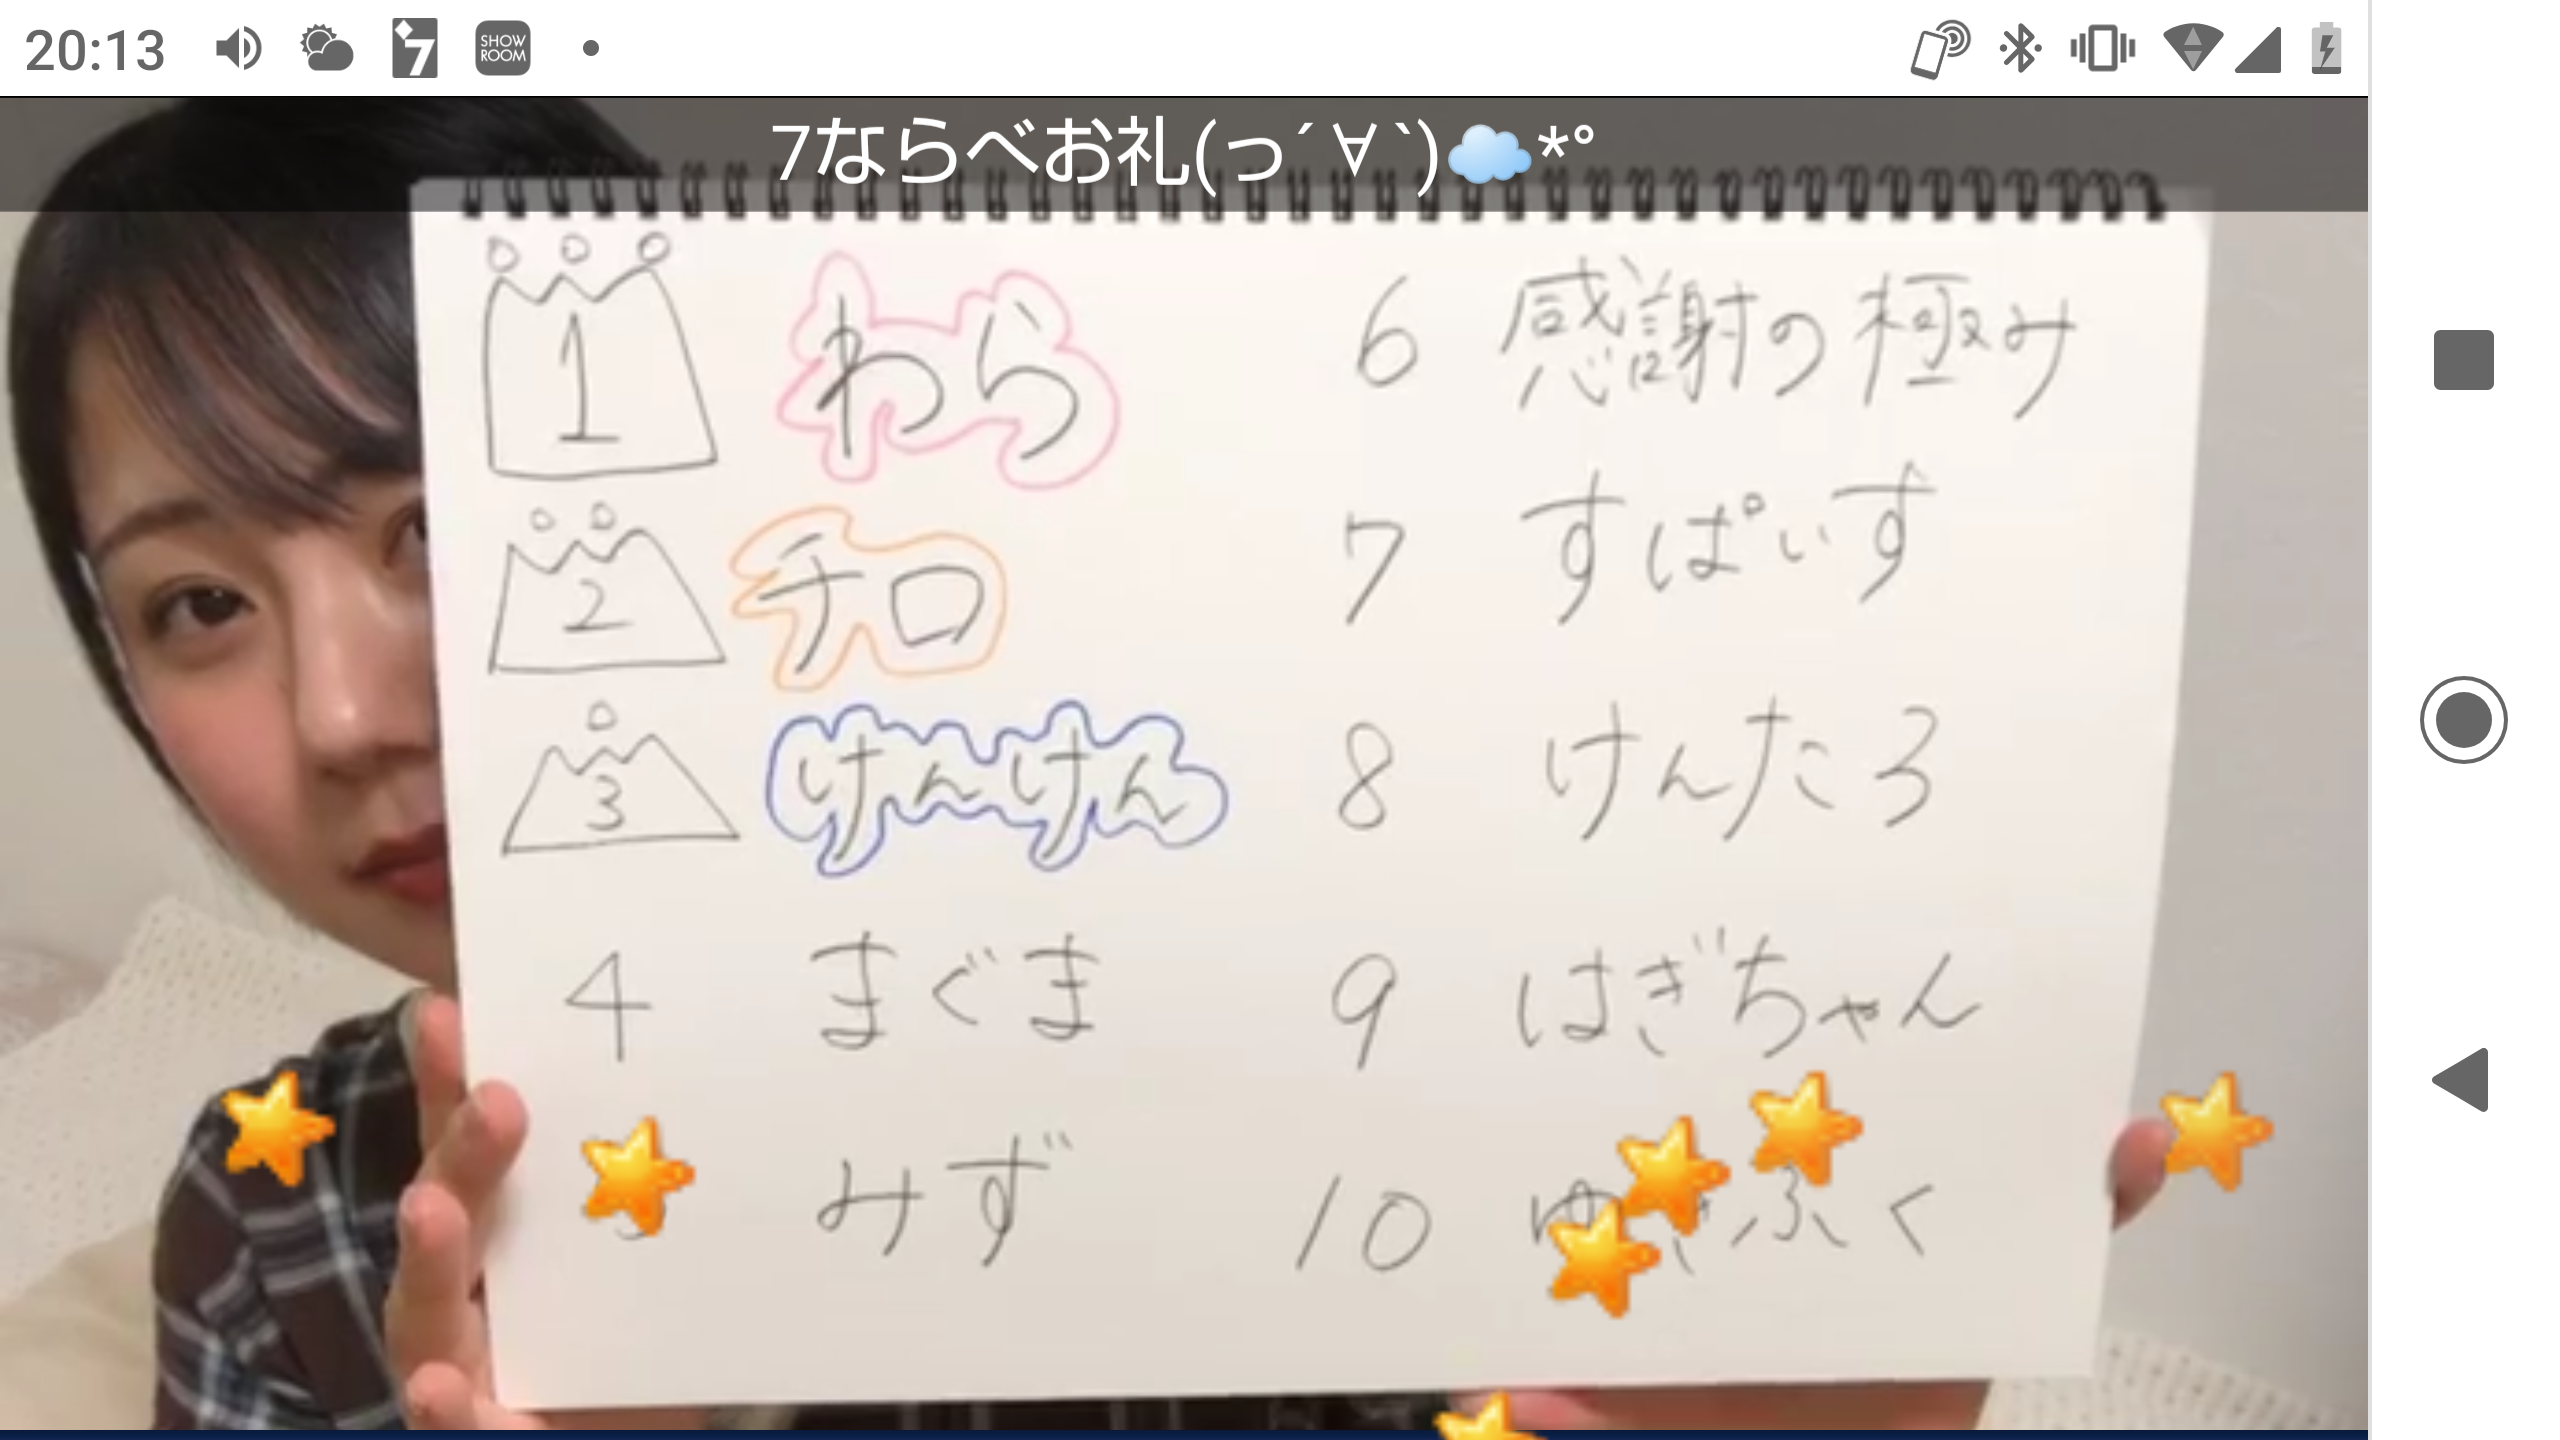 20:13
7
SHOW
ROOM
7ならべお礼(っ´∀`)☁️*°
1 わら
2 チロ
3 けんけん
4 まぐま
みず
6 感謝の極み
7 すぱいす
8 けんたろ
9 はぎちゃん
10